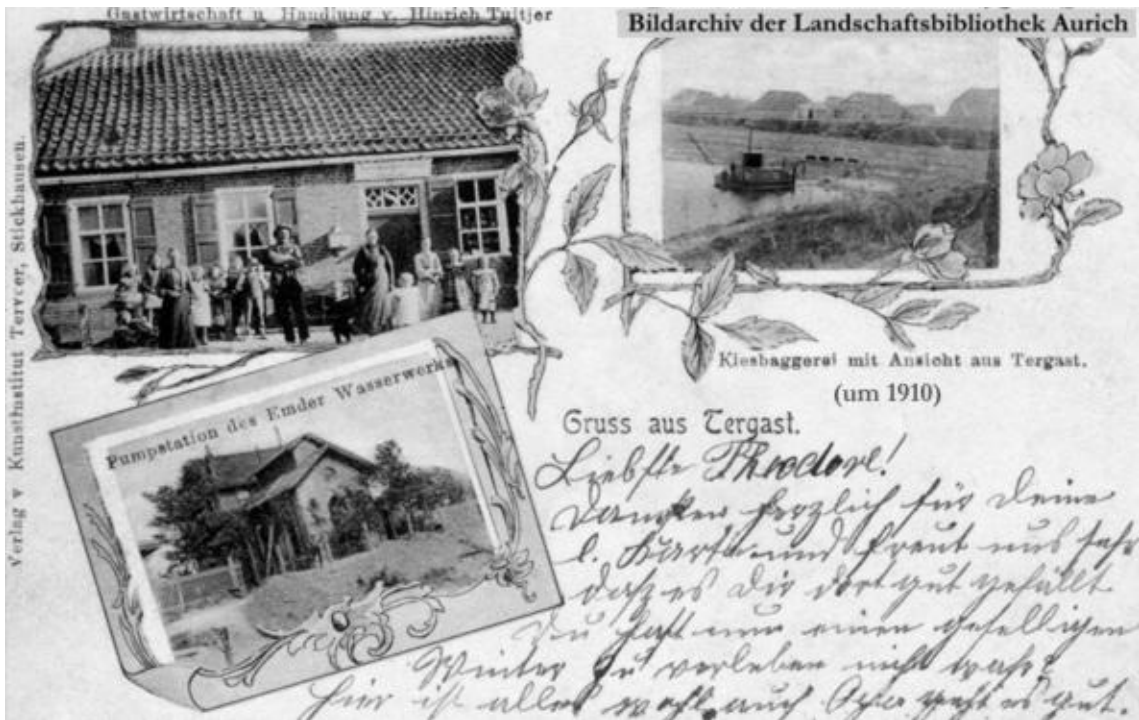 Gastwirtschaft u Handlung v. Hinrich Tuitjer
Bildarchiv der Landschaftsbibliothek Aurich
Verlag v Kunstinstitut Terveer, Stickhausen.
Kiesbaggerei mit Ansicht aus Tergast.
(um 1910)
Pumpstation des Emder Wasserwerks
Gruss aus Tergast.
Liebste Theodore!
Danken herzlich für Deine
l. Karte und freut uns sehr
dasz es Dir dort gut gefällt
Du hast nun einen geselligen
Winter zu verleben nicht wahr?
Hier ist alles wohl, auch Opa geht es gut.